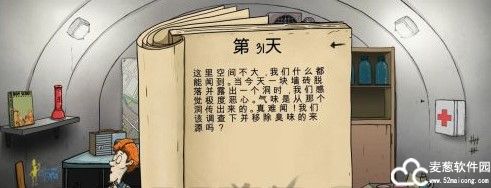 第 31 天
这里空间不大，我们什么都
能闻到。当今天一块墙砖脱
落并露出一个洞时，我们感
觉极度恶心。气味是从那个
洞传出来的。真难闻！我们
该调查下并移除臭味的来
源吗？
麦葱软件园
www.52maicong.com